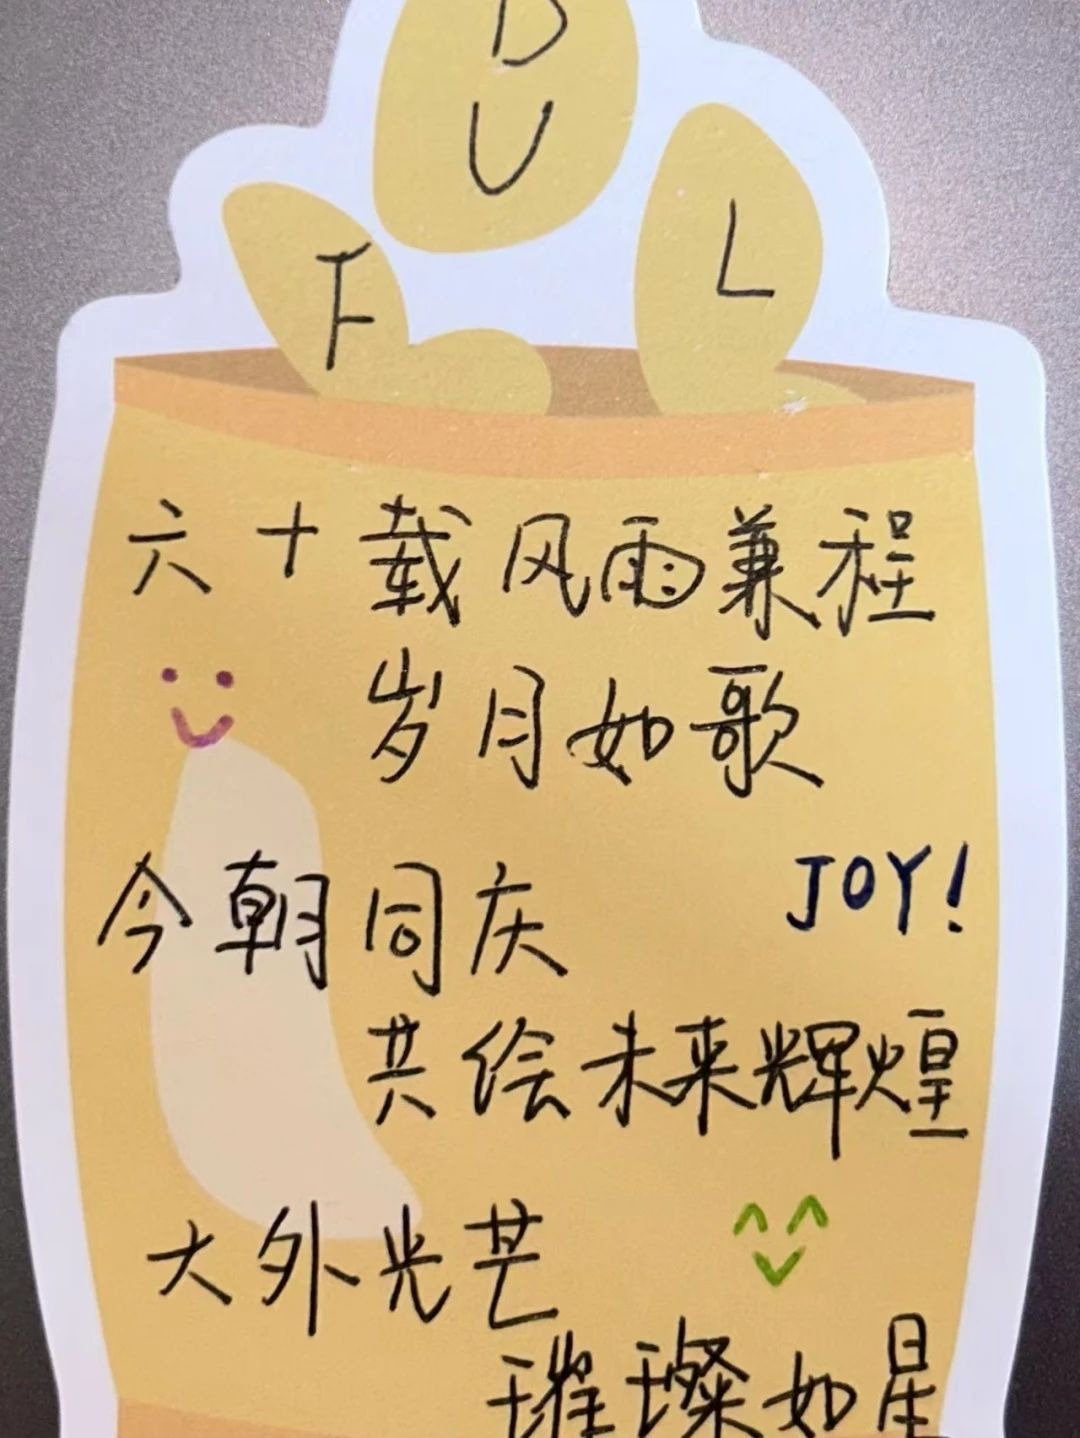 D
U
F
L
六十载风雨兼程
岁月如歌
今朝同庆
JOY!
共绘未来辉煌
大外光芒
璀璨如星